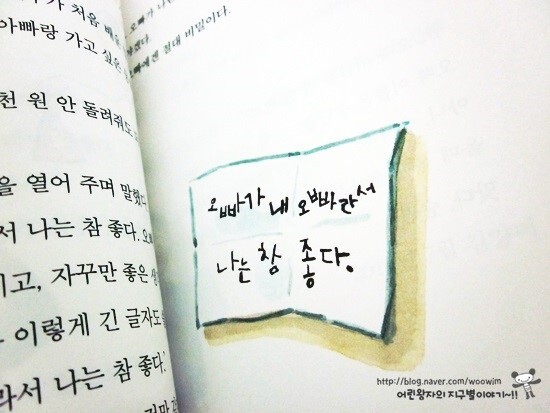 처음
아빠랑 가고 싶은
천 원 안 돌려줘도
을 열어 주며 말했다
서 나는 참 좋다. 오
고, 자꾸만 좋은
이렇게 긴 글자도
라서 나는 참 좋다.
오빠가
절대 비밀이다.
오빠가 내 오빠라서
나는 참 좋다.
http://blog.naver.com/woowim
어린왕자의 지구별이야기~!!